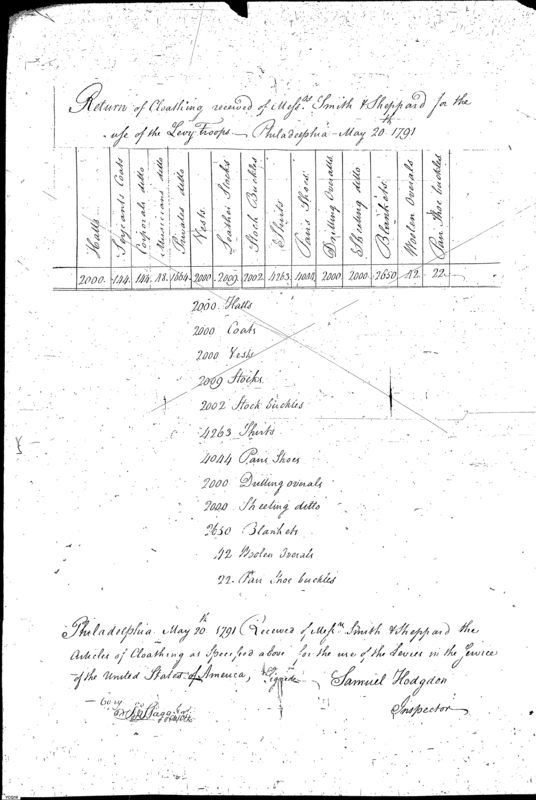 Return of Cloathing received of Messrs. Smith & Sheppard for the
use of the Levy Troops — Philadelphia — May 20th 1791
Hatts Serjeants Coats Corporals ditto Musicians ditto Privates ditto Vests Leather Stocks Stock Buckles Shirts Pairs Shoes Drilling Overalls Sheeting ditto Blankets Woolen Overals Pair Shoe buckles
2000. 144. 144. 48. 1664. 2000 2009. 2002. 4263. 4044. 2000 2000. 2650. 42. 22.
2000 Hatts
2000 Coats
2000 Vests
2009 Stocks
2002 Stock buckles
4263 Shirts
4044 Pairs Shoes
2000 Drilling overals
2000 Sheeting ditto
2650 Blankets
42 Woolen Overals
22 Pair Shoe buckles
Philadelphia May 20th 1791 Received of Messrs Smith & Sheppard the
Articles of Cloathing as Specified above for the use of the Levies in the Service
of the United States of America, Signed Samuel Hodgdon
Copy
Inspector